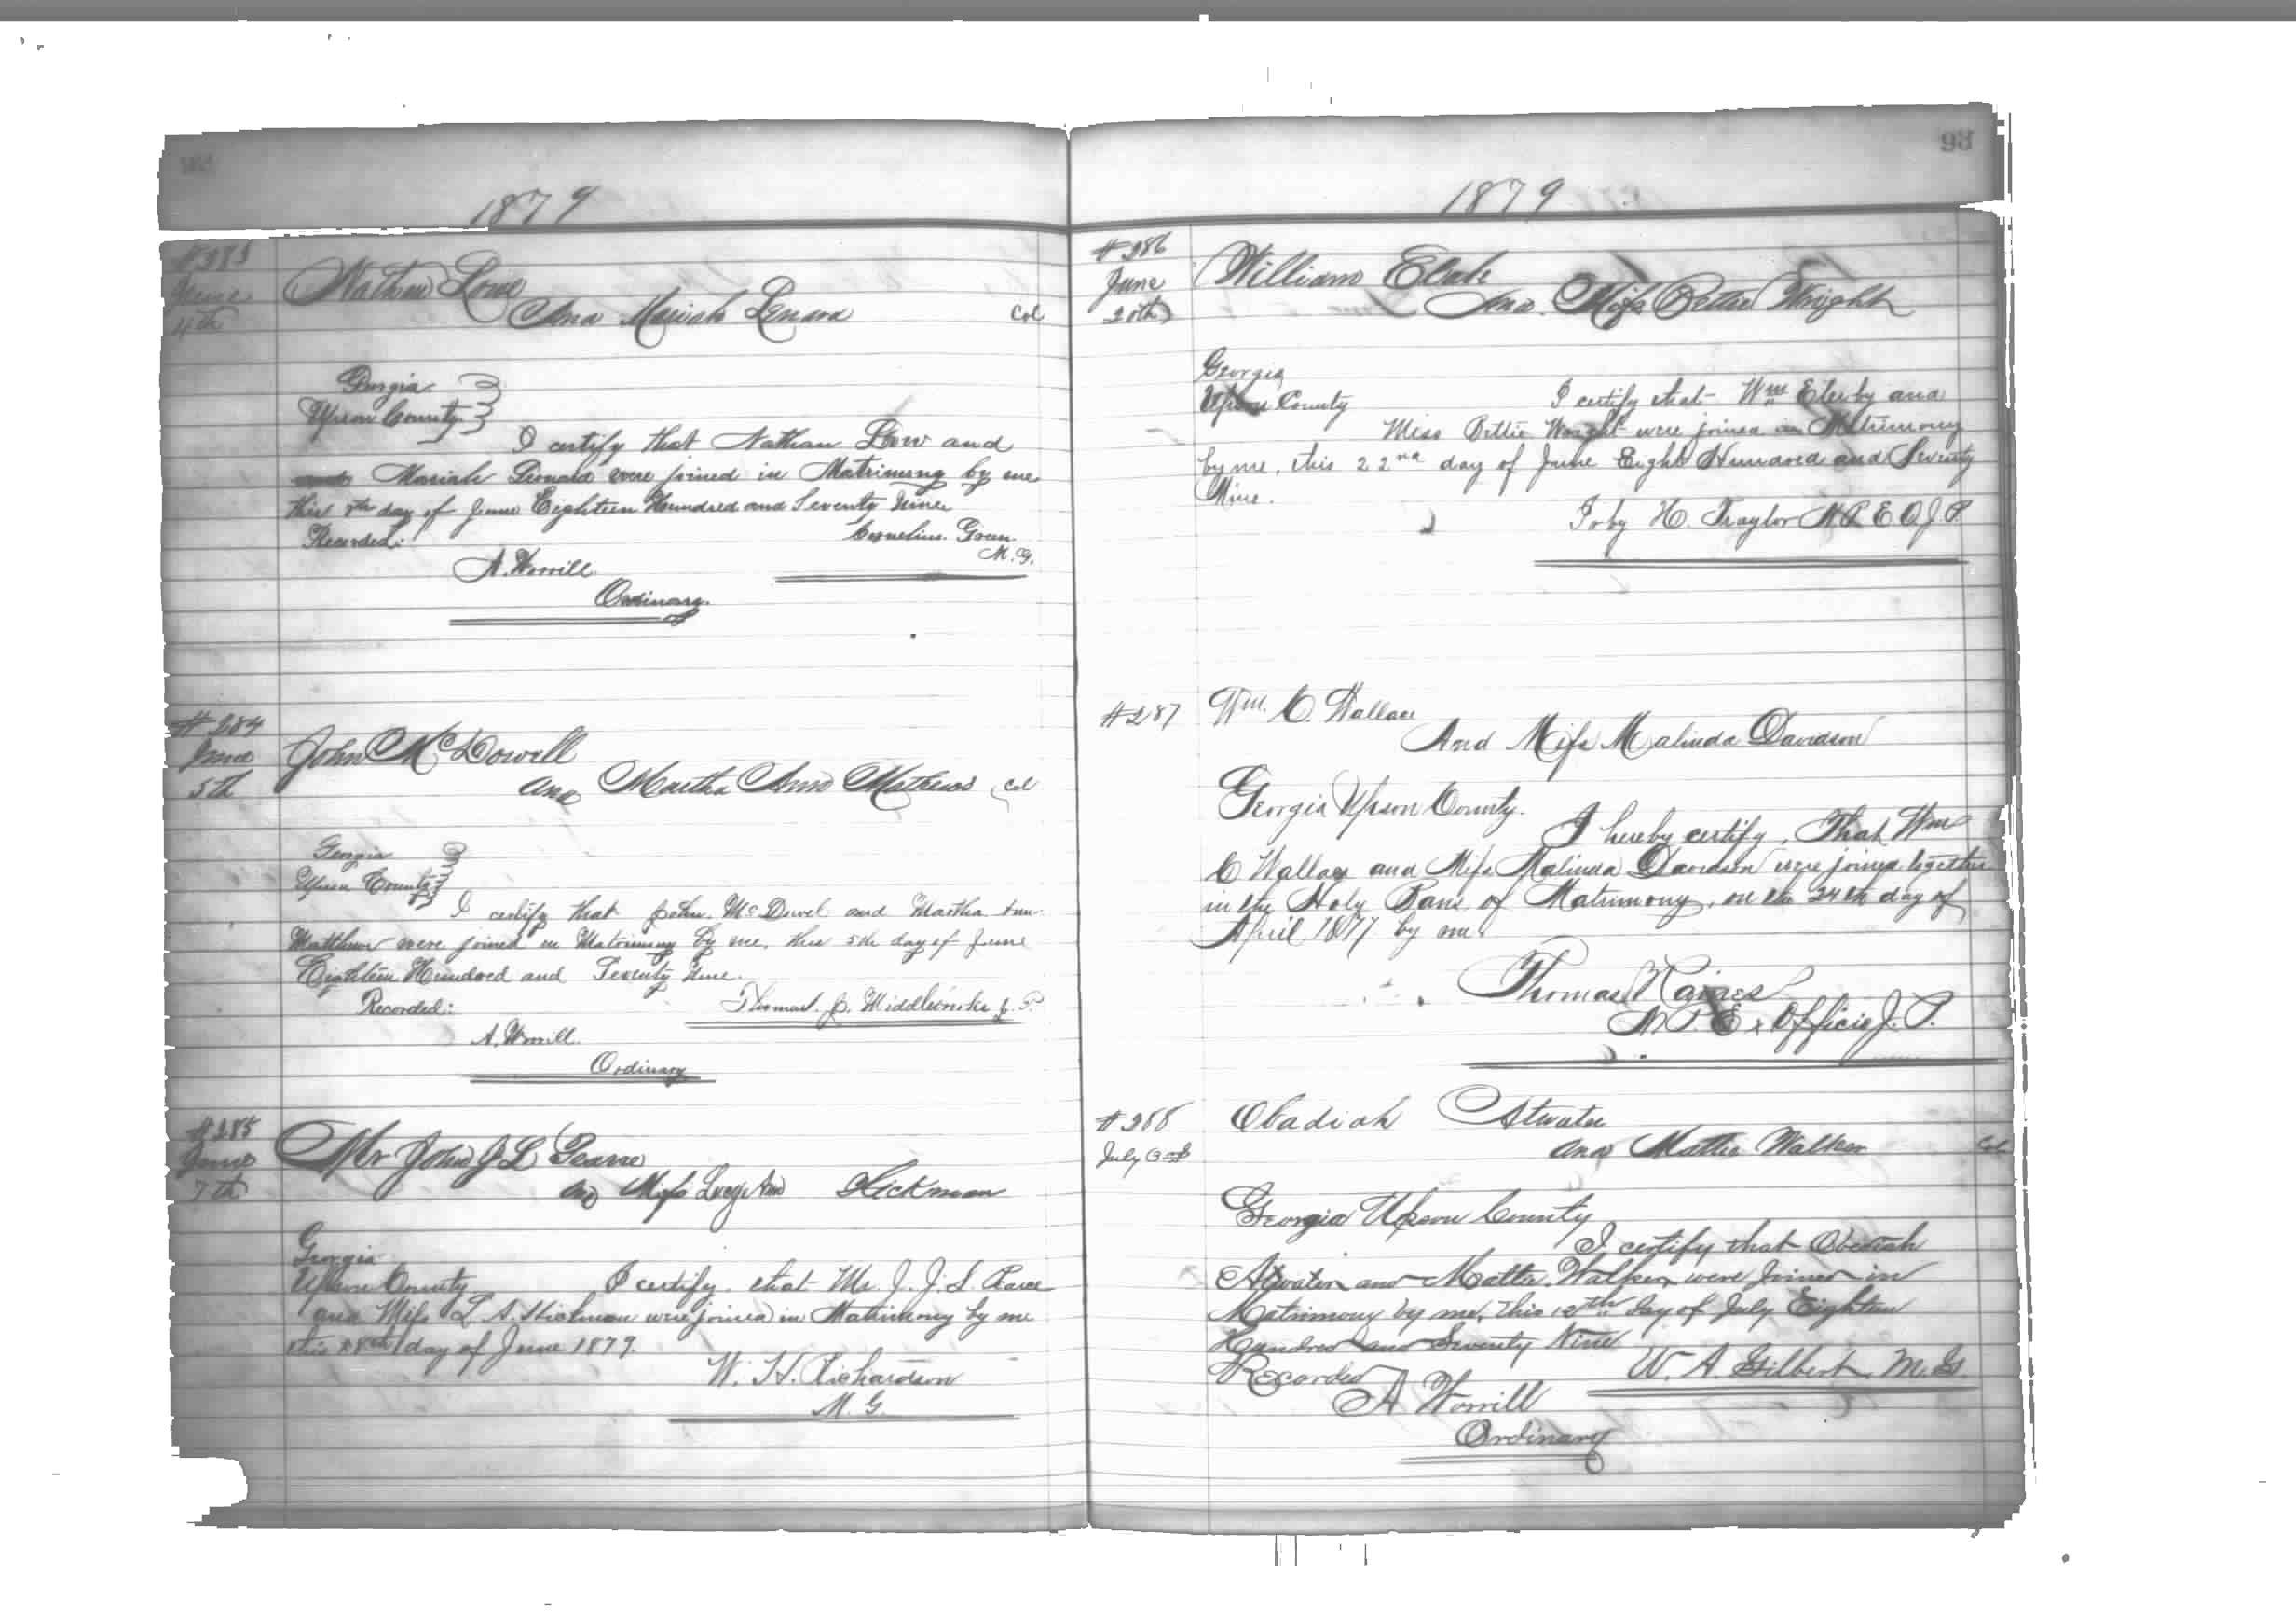 1879
#283
June
4th
Nathan Lowe
And Mariah Lenard Col
Georgia
Upson County
I certify that Nathan Low and
and Mariah Leonard were joined in Matrimony by me
this 8th day of June Eighteen Hundred and Seventy Nine
Recorded: Cornelius Green
M. G.
A. Worrill
Ordinary
#284
June
5th
John McDowell
and Martha Ann Mathews Col
Georgia
Upson County
I certify that John McDowel and Martha Ann
Matthews were joined in Matrimony by me, this 5th day of June
Eighteen Hundred and Seventy Nine.
Recorded: Thomas. J. Middlebrooks J. P.
A. Worrill
Ordinary
#285
June
7th
Mr John J L Pearce
and Miss Lucy Ann Hickman
Georgia
Upson County I certify that Mr. J. J. L. Pearce
and Miss L A. Hickman were joined in Matrimony by me
this day of June 1879.
W. H. Richardson
M. G.
93
1879
#286
June
20th
William
And Miss Bettie Wright
Georgia
Upson County I certify that Wm Elerby and
Miss Bettie Wright were joined in Matrimony
by me, this 22nd day of June Eight Hundred and Seventy
Nine.
H. Traylor N. P. E O J P
#287
Wm. C. Wallace
And Miss Malinda Davidson
Georgia Upson County.
I hereby certify, That Wm
C Wallace and Miss Malinda Davidson were joined together
in the Holy Bans of Matrimony, on the 24th day of
April 1877 by me.
Thomas Raines
N. P. Ex Officio J. P.
#288
July
Obadiah Atwater
and Mattie Walker Col
Georgia Upson County
I certify that Obediah
Atwater and Mattie Walker were Joined in
Matrimony by me, this 12th day of July Eighteen
Hundred and Seventy Nine
Recorded W. A. Gilbert M. G.
A Worrill
Ordinary